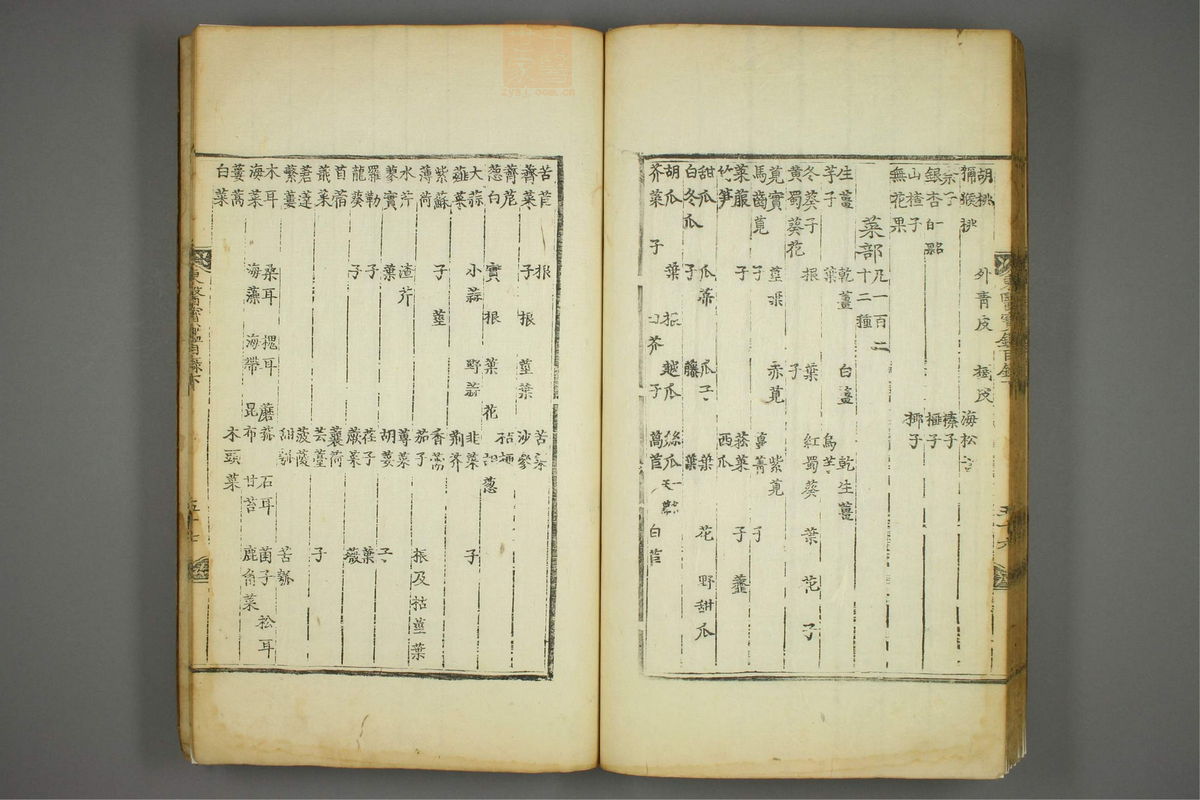 胡桃 外青皮 樹皮
獼猴桃 海松子
柰子 榛子
銀杏 榧子
山楂子 椰子
無花果
菜部 凡一百二十二種
生薑 乾薑 白薑 乾生薑
芋子 葉 烏芋
冬葵子 根 葉 紅蜀葵 葉 花 子
黄蜀葵花 子
莧實 莖葉 赤莧 紫莧
馬齒莧 子 蔓菁 子
萊菔 子 菘菜 子 虀
竹笋 西瓜
甜瓜 瓜蔕 瓜子 葉 花 野甜瓜
白冬瓜 子 藤 葉
胡瓜 葉 根 越瓜 絲瓜
芥菜 子 白芥子 萵苣 白苣
東醫寶鑑目錄下 五十六
苦苣 根 苦菜
薺菜 子 根 莖葉 沙參
薺苨 桔梗
葱白 實 根 葉 花 胡葱
大蒜 小蒜 野蒜 韭菜 子
薤菜 荊芥
紫蘇 子 莖 香薷
薄荷 茄子 根及枯莖葉
水芹 渣芹 蓴菜
蓼實 葉 胡荽 子
羅勒 子 荏子 葉
龍葵 子 蕨菜 薇
苜蓿 蘘荷
蕺菜 芸薹 子
莙薘 菠薐
蘩蔞 甜瓠 苦瓠
木耳 桑耳 槐耳 蘑菰 石耳 菌子 松耳
海菜 海藻 海帶 昆布 甘苔 鹿角菜
蔞蒿 木頭菜
白菜
東醫寶鑑目錄下 五十七